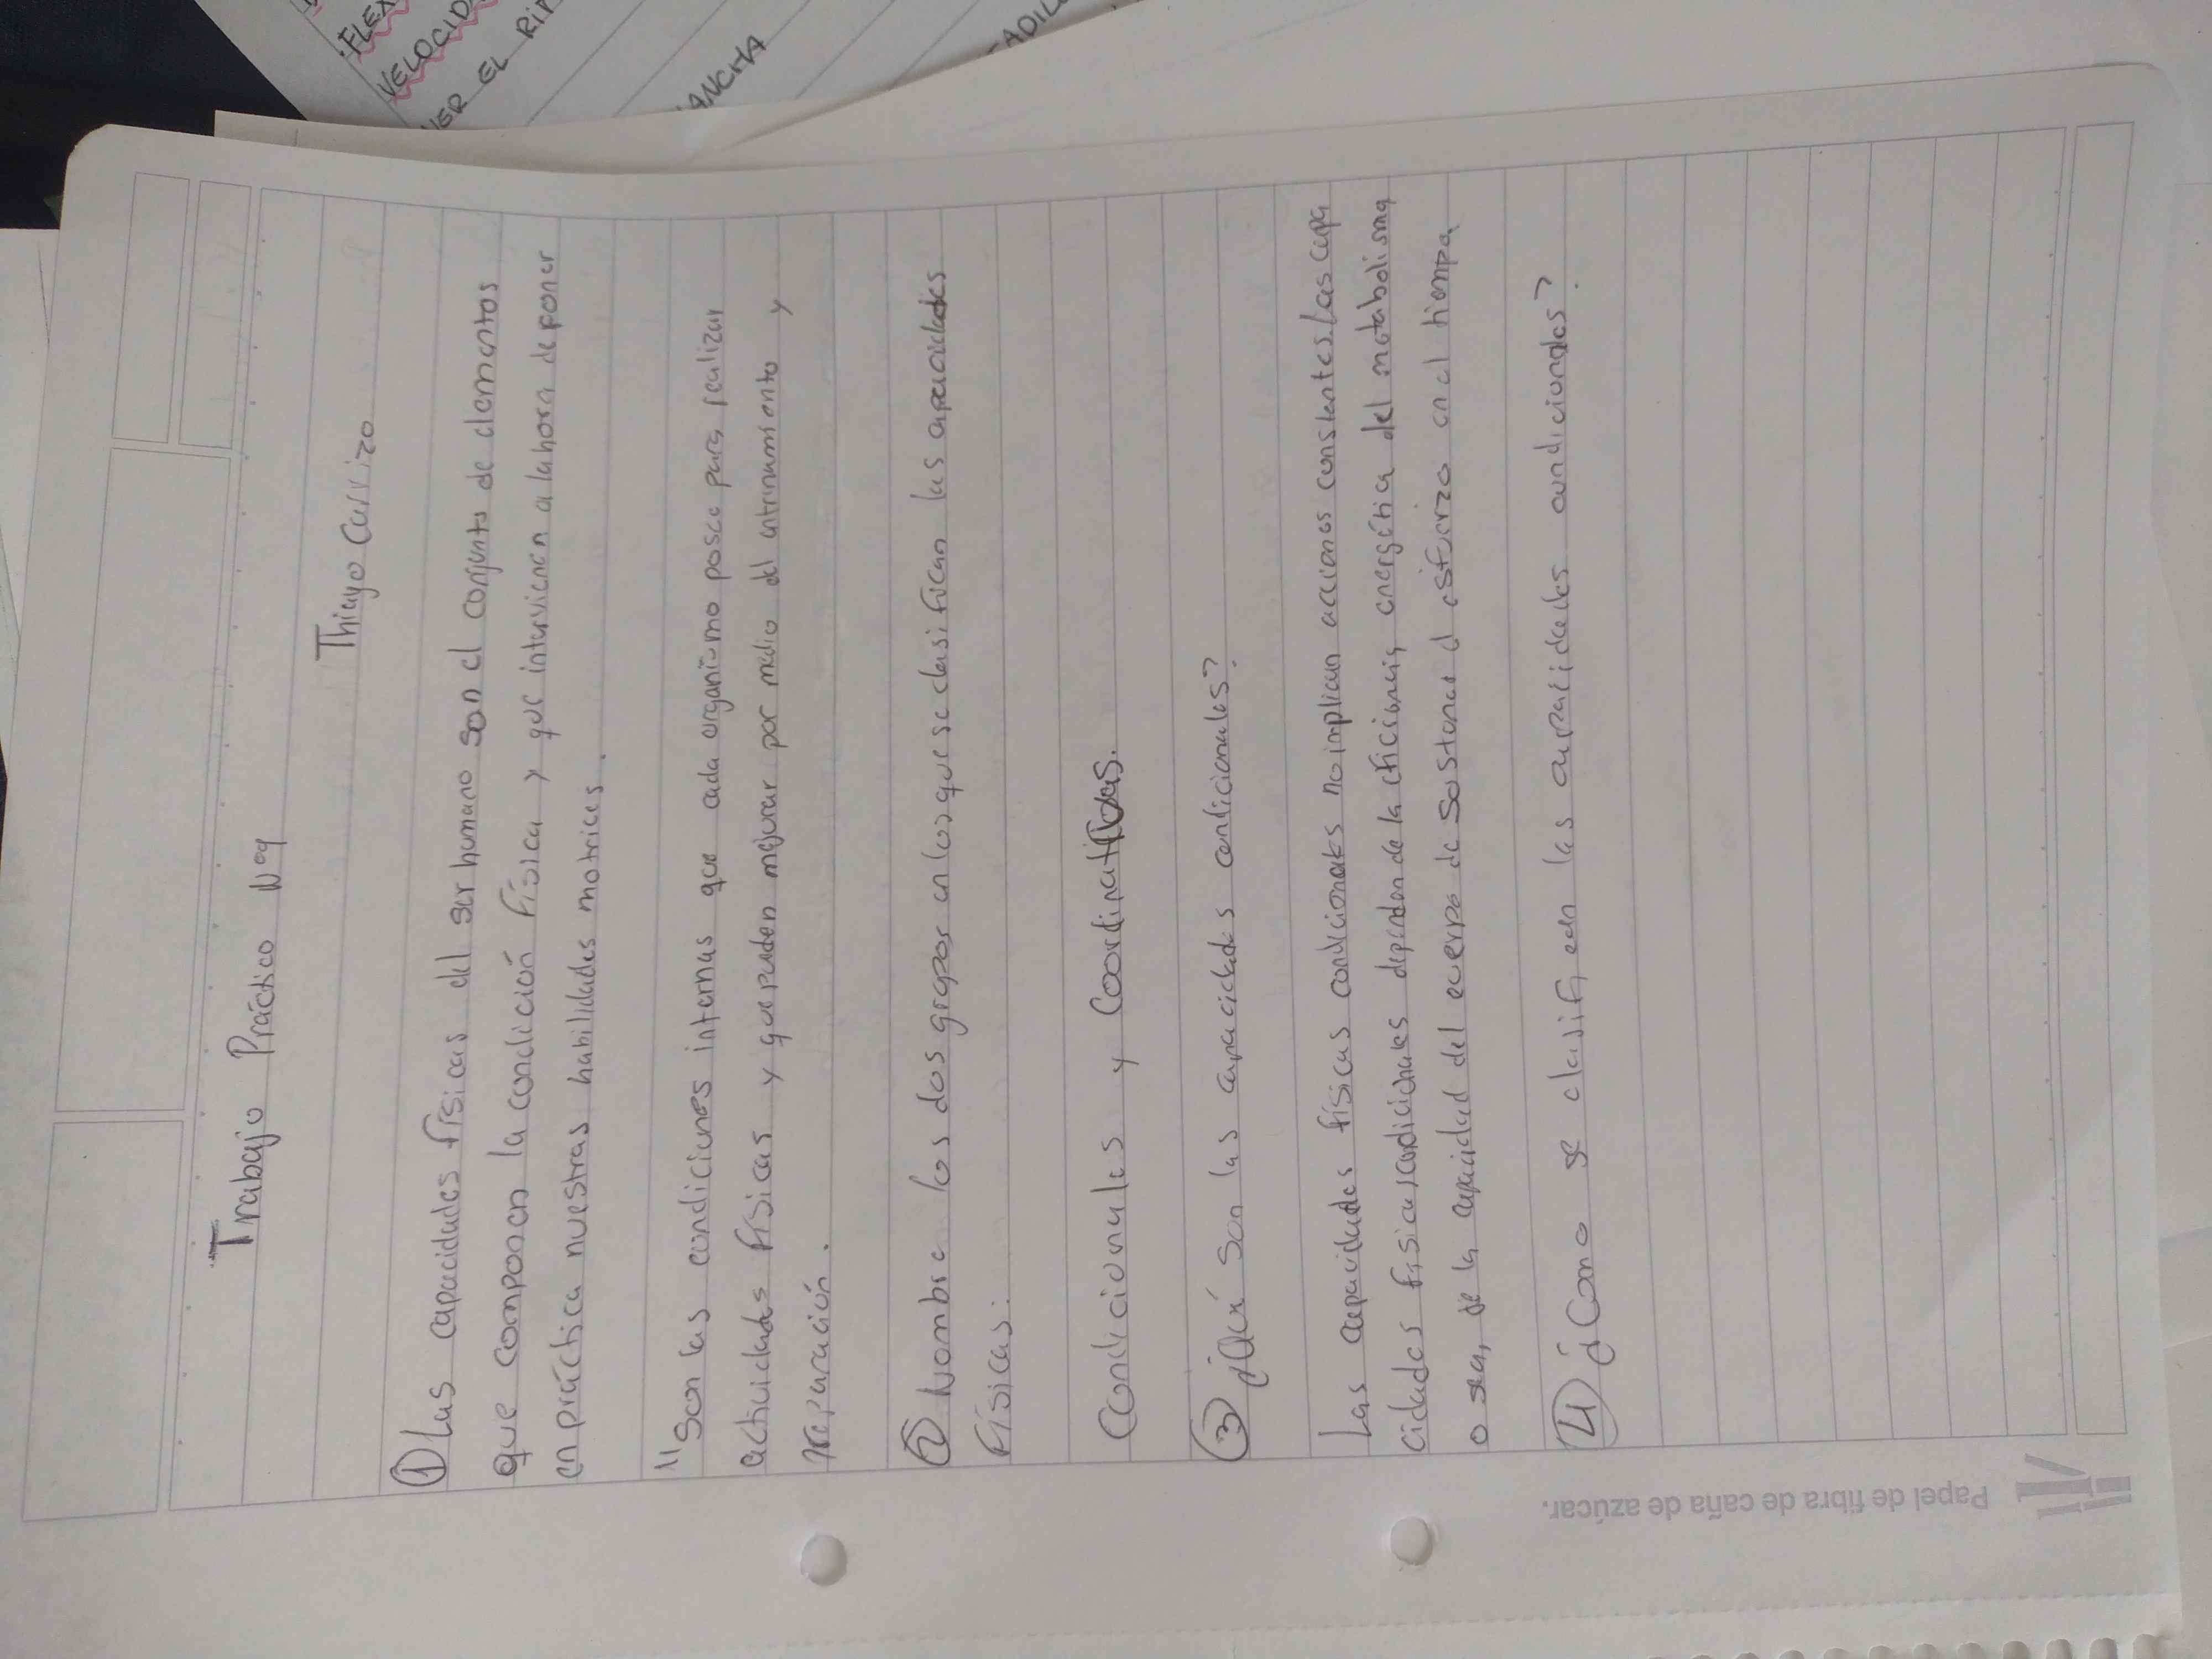 Trabajo Práctico Nº9
Thiago Carrizo
① Las capacidades físicas del ser humano son el conjunto de elementos
que componen la condición física y que intervienen a la hora de poner
en práctica nuestras habilidades motrices.
"Son las condiciones internas que cada organismo posee para realizar
actividades físicas y que pueden mejorar por medio del entrenamiento y
preparación.
② Nombre los dos grupos en los que se clasifican las capacidades
físicas:
Condicionales y Coordinativas.
③ ¿Qué son las capacidades condicionales?
Las capacidades físicas condicionales no implican acciones conscientes. Las capa
cidades físicas condicionales dependen de la eficiencia energética del metabolismo
o sea, de la capacidad del cuerpo de sostener el esfuerzo en el tiempo
④ ¿Como se clasifican las capacidades condicionales?
Papel de fibra de caña de azúcar.
VER EL
ANCHA